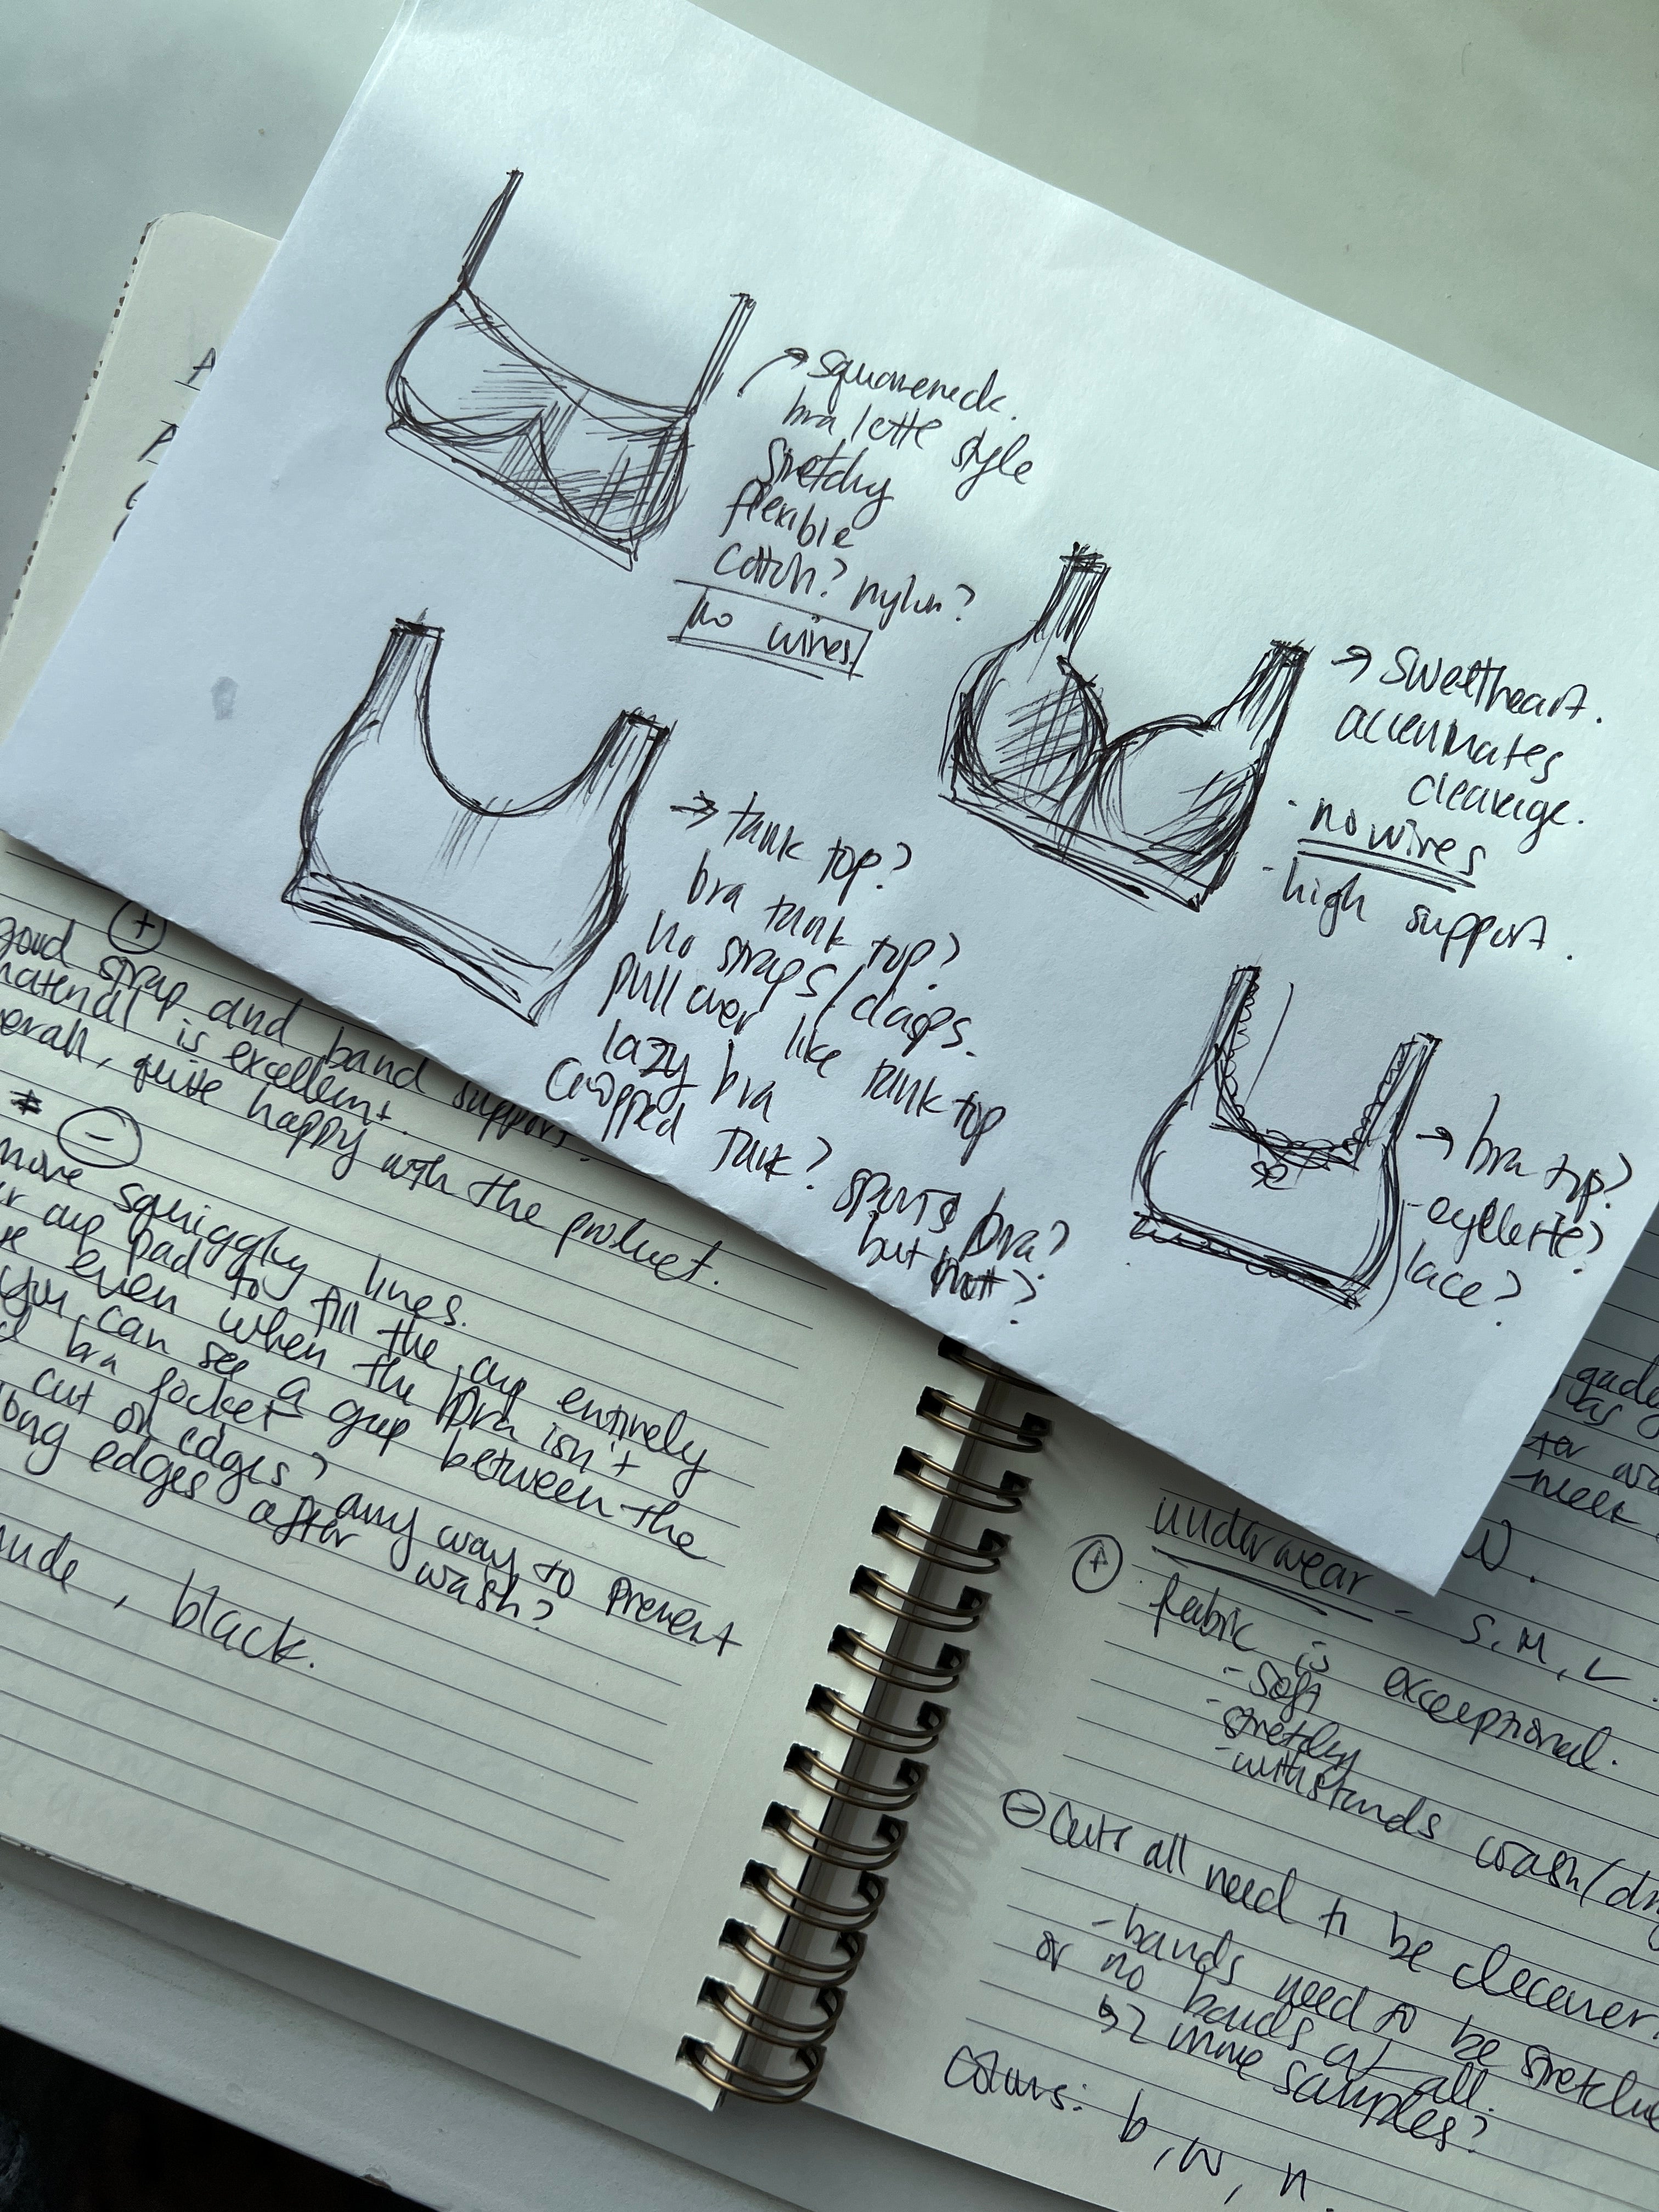 squareneck.
bralette style
stretchy
flexible
cotton? nylon?
no wires
→ sweetheart.
accentuates
cleavage.
- no wires
- high support.
→ tank top?
bra tank top?
no straps/clasps.
pull over like tank top
lazy bra
cropped tank? sports bra?
but not?
→ bra top?
- eyelette?
lace?
good strap and band support.
material is excellent.
overall, quite happy with the product.
* -
more squiggly lines.
cup pad to fill the cup entirely
even when the bra isn't
you can see a gap between the
bra pocket
cut on edges? any way to prevent
edges after wash?
nude, black.
underwear - S, M, L.
+ fabric is exceptional.
- soft
- stretchy
- withstands wash/
- cuts all need to be cleaner.
- bands need to be
or no bands at all.
↳ 2 more samples?
colours: b, w, n.